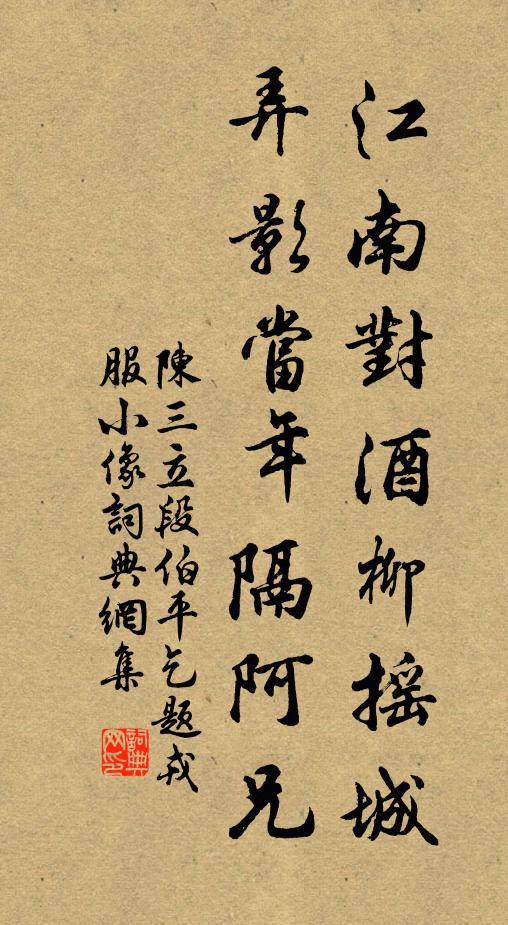 江南對酒柳搖城
弄影當年隔阿兄
陳三立段伯平乞題戎
服小像詞典網集
詞典网印